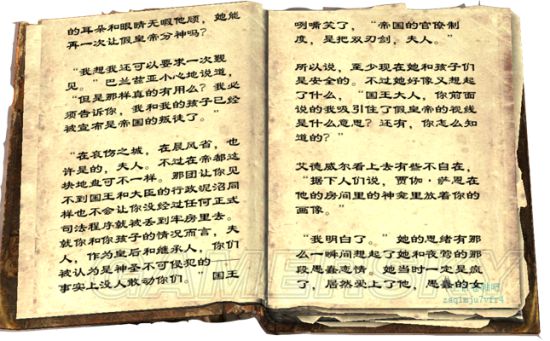 的耳朵和眼睛无暇他顾，她能
再一次让假皇帝分神吗？
“我想我还可以要求一次觐
见。”巴兰兹亚小心地说道，
“但是那样真的有用么？我必
须告诉你，我和我的孩子已经
被宣布是帝国的叛徒了。”
“在哀伤之城，在晨风省，也
许是的，夫人。不过在帝都这
块地盘可不一样。那团让你见
不到国王和大臣的行政泥沼同
样也不会让你没经过任何正式
司法程序就被丢到牢房里去。
就你和你孩子的情况而言，夫
人，作为皇后和继承人，你们
被认为是神圣不可侵犯的
事实上没人敢动你们。”国王
咧嘴笑了，“帝国的官僚制
度，是把双刃剑，夫人。”
所以说，至少现在她和孩子们
是安全的。不过她好像又想起
了什么，“国王大人，你前面
说的我吸引住了假皇帝的视线
是什么意思？还有，你怎么知
道的？”
艾德威尔看上去有些不自在，
“据下人们说，贾伽·萨恩在
他的房间里的神龛里放着你的
画像。”
“我明白了。”她的思绪有那
么一瞬间想起了她和夜莺的那
段愚蠢恋情 她当时一定是疯
了，居然爱上了他，愚蠢的女
GAMERSKY
zsqimju7vfr4